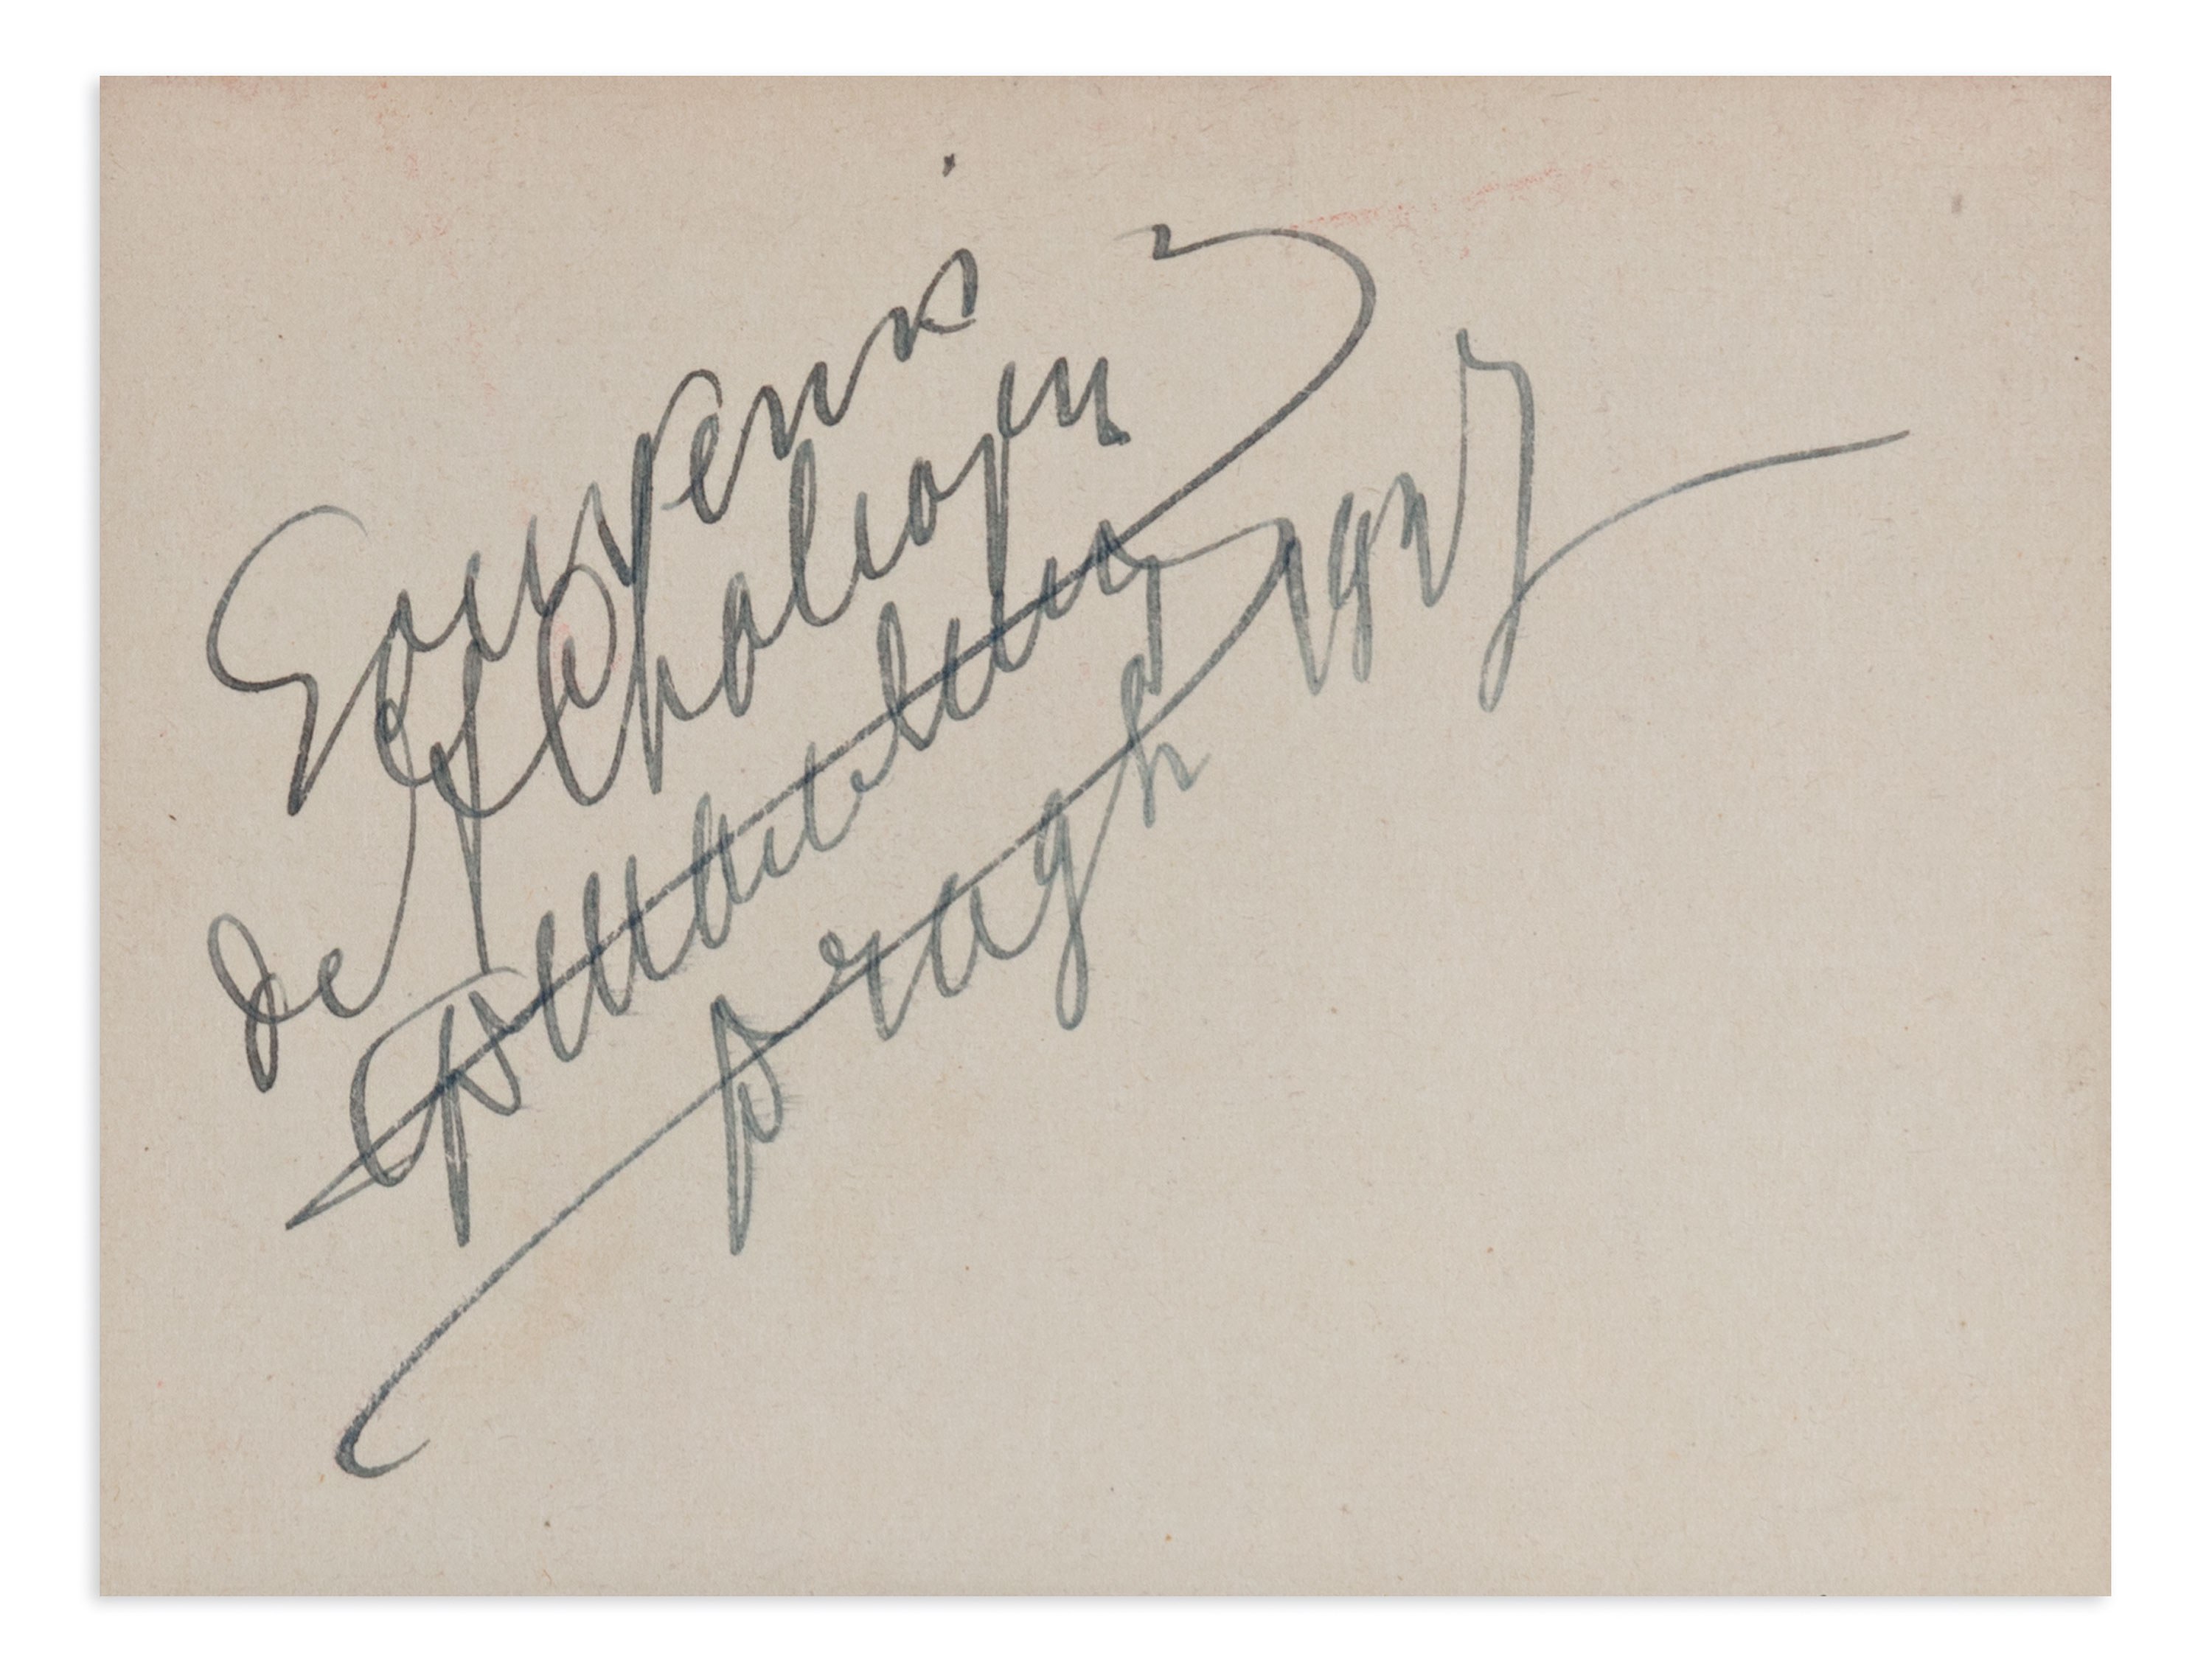 Souvenir
de F Chaliapin
pragh 1927